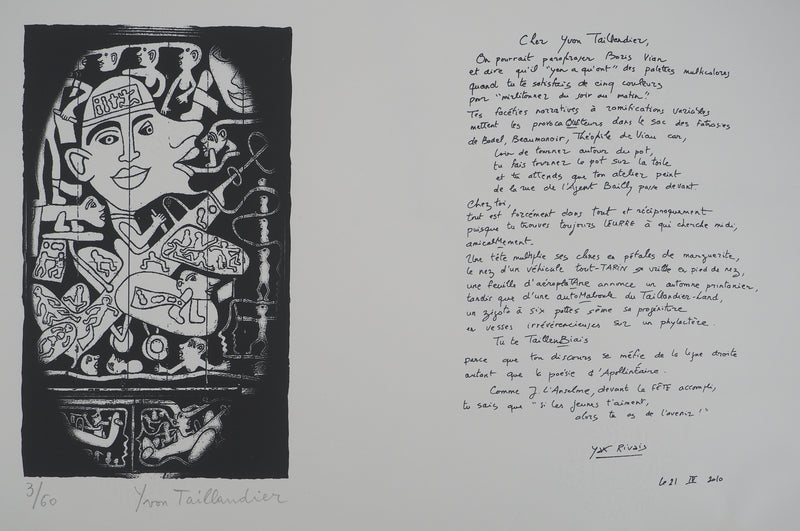 Cher Yvon Taillandier,
On pourrait paraphraser Boris Vian
et dire qu'il "yen a qu'ont" des palettes multicolores
quand tu te satisfais de cinq couleurs
pour "mirlitonner du soir au matin"
Tes facéties narratives à ramifications variables
mettent les provocaOUteurs dans le sac des fatrasies
de Bodel, Beaumanoir, Théophile de Viau car,
loin de tourner autour du pot,
tu fais tourner le pot sur la toile
et tu attends que ton atelier peint
de la rue de l'Agent Bailly passe devant.
Chez toi,
tout est forcément dans tout et réciproquement
puisque tu trouves toujours LEURRE à qui cherche midi,
amicalement.
Une tête multiplie ses clones en pétales de marguerite,
le nez d'un véhicule tout-TARIN se vrille en pied de nez,
une feuille d'aéroplaTAne annonce un automne printanier,
tandis que d'une autoMaboule du Taillandier-Land,
un zigoto à six pattes sème sa progéniture
en vesses irrévérencieuses sur un phylactère.
Tu te TaillenBiais
parce que ton discours se méfie de la ligne droite
autant que la poésie d'Apollinaire.
Comme J. L'Anselme, devant le FÊTE accompli,
tu sais que "si les jeunes t'aiment,
alors tu as de l'avenir!"
Yak Rivais
le 21 IV 2010
3/60 Yvon Taillandier